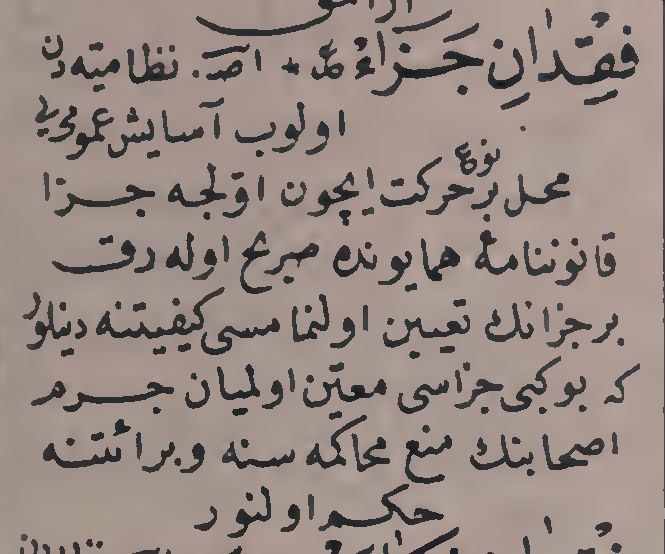 فِقْدٰانِ جَزَاءْ ع * اصـ. نظاميه دن
اولوب آسايش عمومى يى
مخل بر نوع حركت ايچون اوّلجه جزا
قانوننامهٔ همايونده صريح اوله رق
بر جزانك تعيين اولنما مسى كيفيتنه دينلور
كه بو كبى جزاسى معيّن اولميان جرم
اصحابنك منع محاكمه سنه وبرائتنه
حكم اولنور